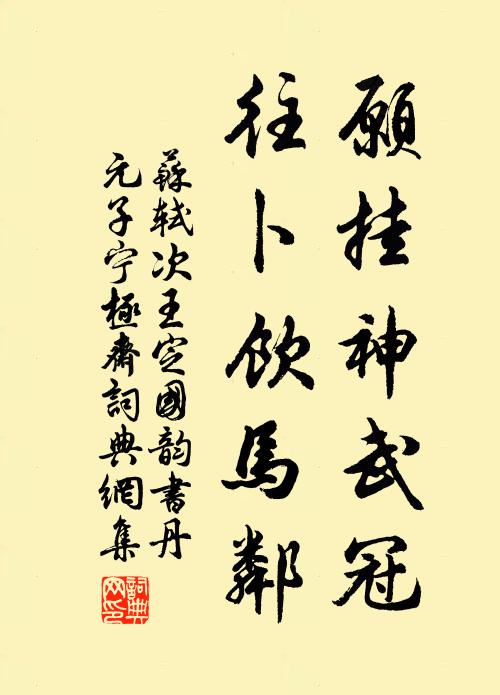 願挂神武冠
往卜飲馬鄰
蘇軾次王定國韵書丹
元子宁極齋詞典網集
詞典网印